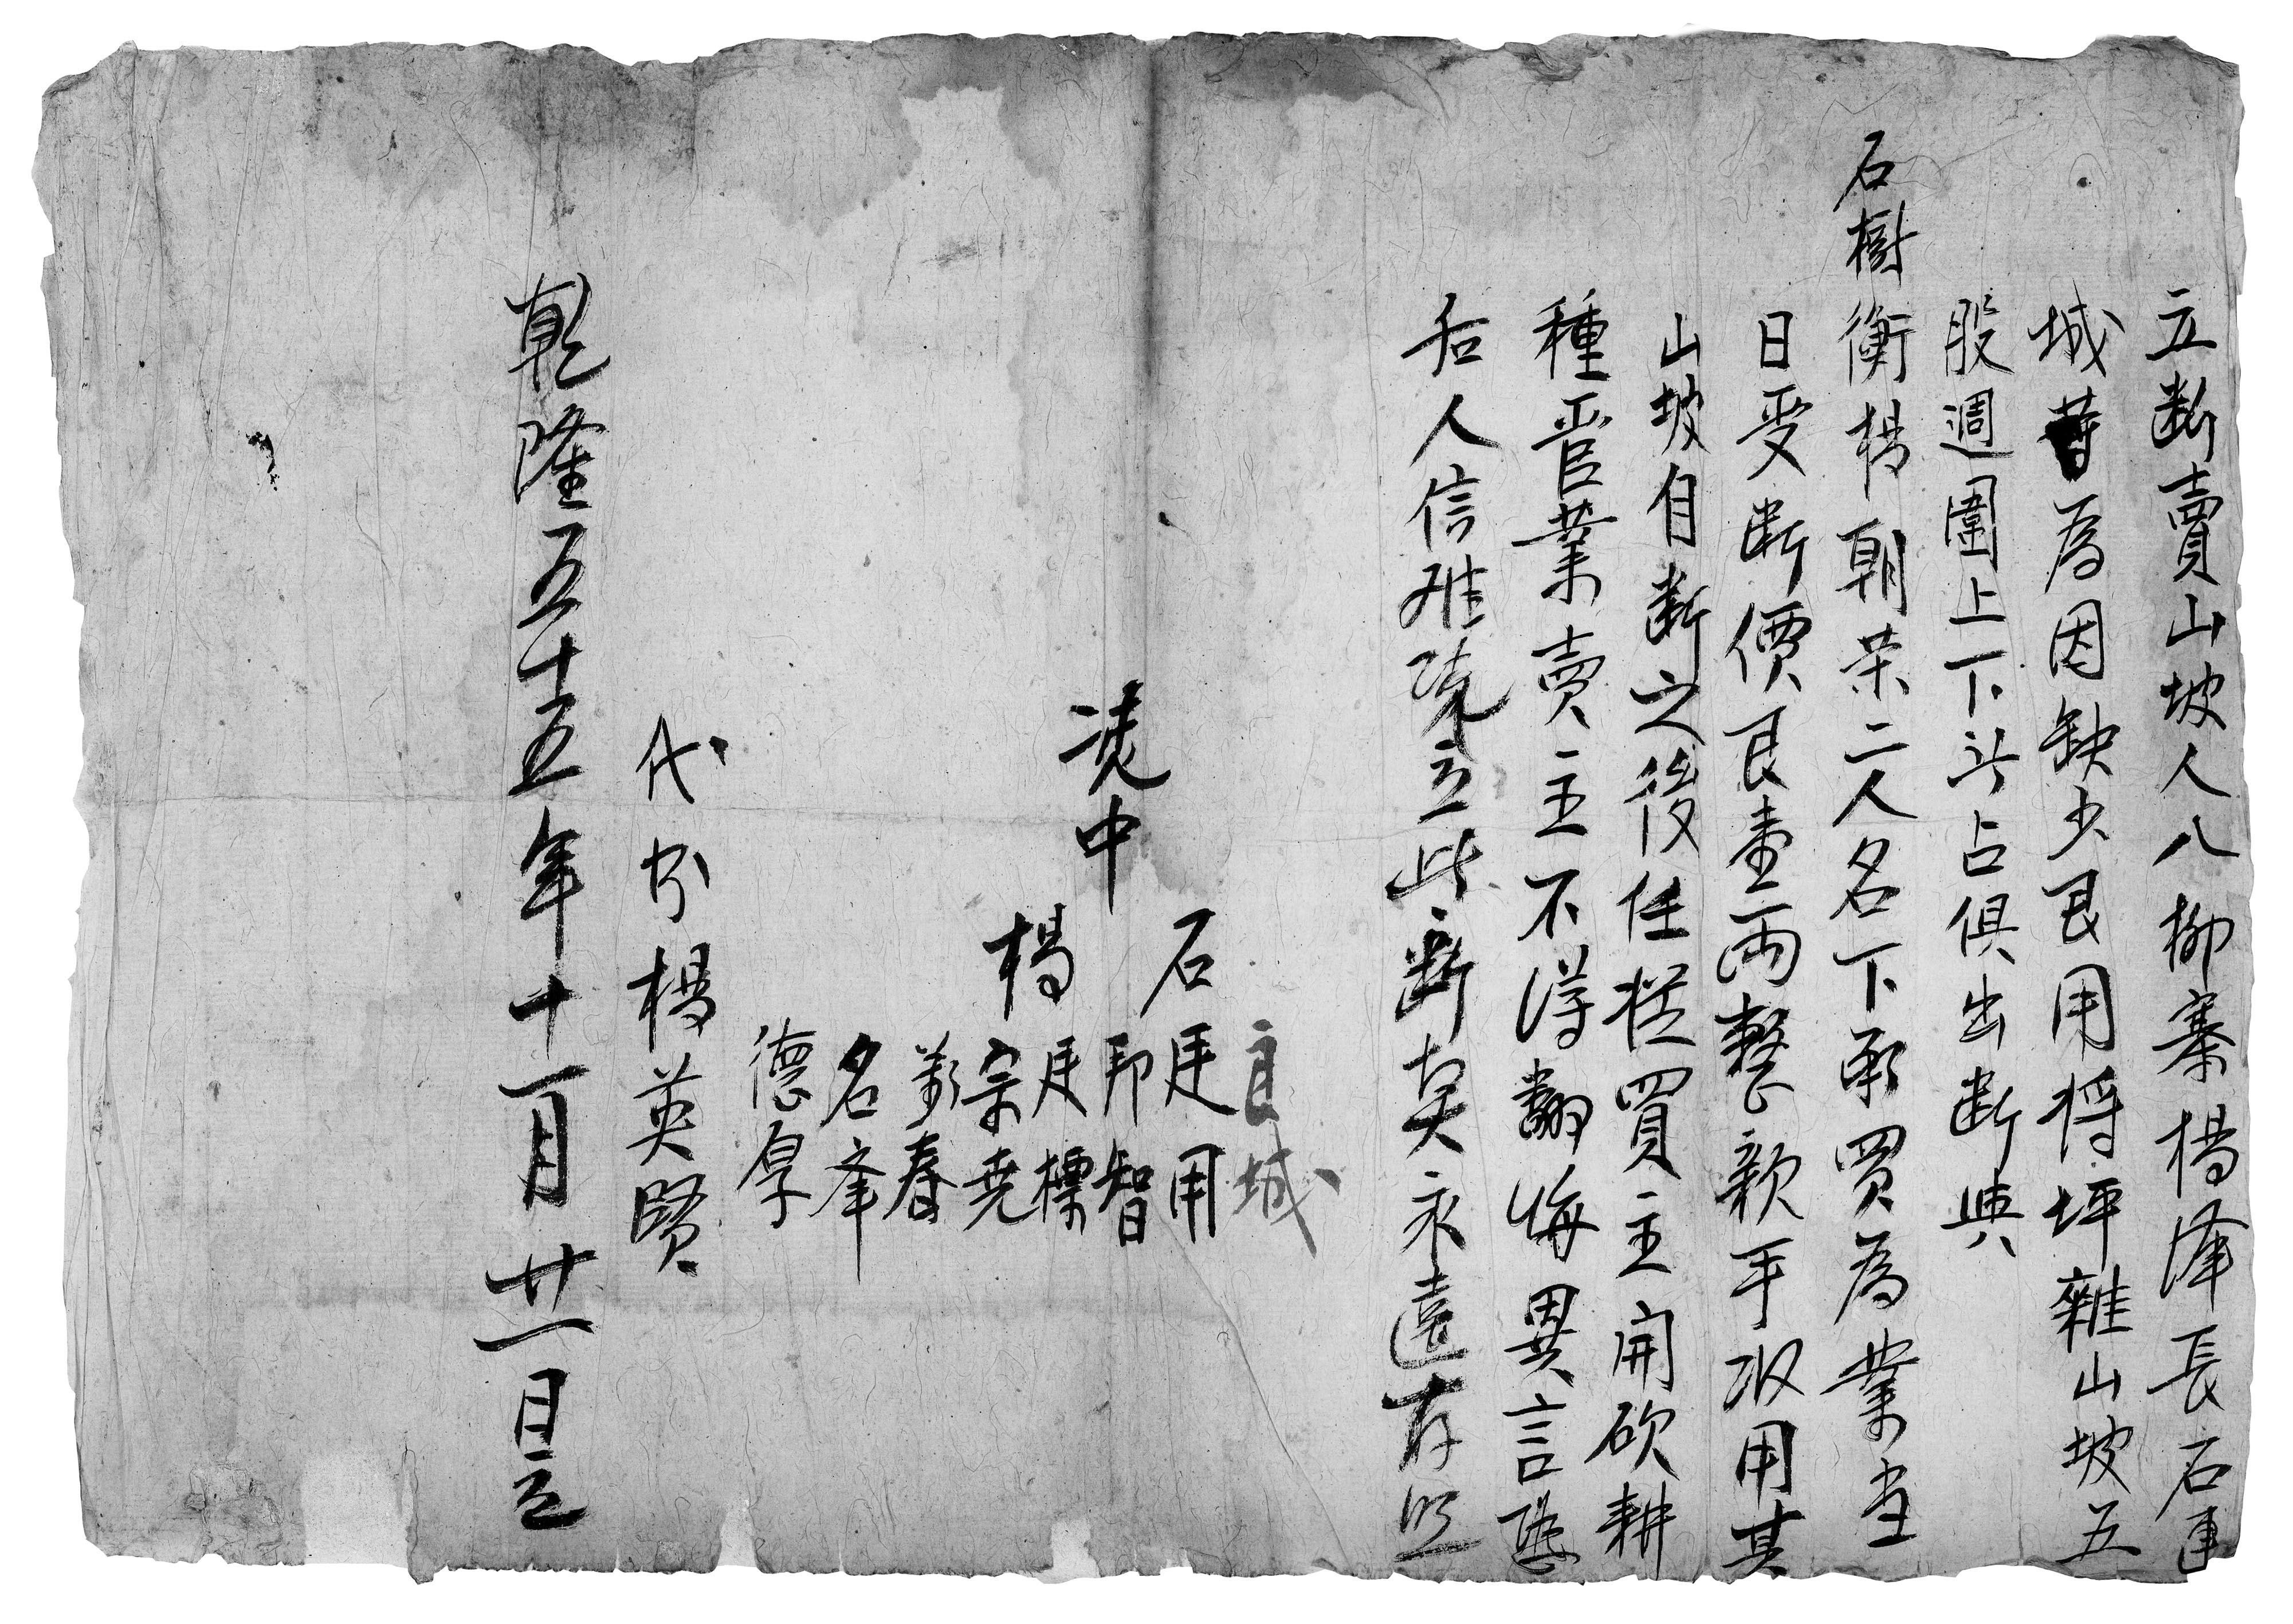 立断賣山坡人八柳寨楊澤長石
城等為因缺少艮用将坪雜山坡五
股週圍上下占俱出断與
石樹衡楊朝荣二人名下承買為業当
日受断價艮壹両整親手收用其
山坡自断之後任從買主開砍耕
種管業賣主不得翻悔異言恐
后人信难憑立此断契永遠存照
憑中
石
良城
廷用
邦智
楊
廷標
宗尭
萬春
名峯
德厚
代办楊英賢
乾隆五十五年十一月廿一日立